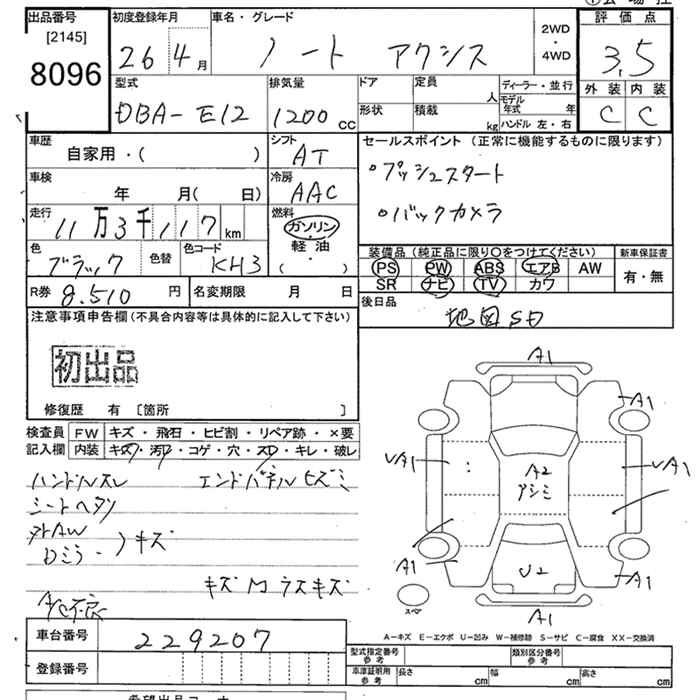 出品番号
[2145]
8096
初度登録年月
26 4月
車名・グレード
ノート アクシス
2WD
・
4WD
評価点
3.5
外装 内装
C C
型式
DBA-E12
排気量
1200cc
ドア
形状
定員 人
積載 kg
ディーラー・並行
モデル年式 年
ハンドル 左・右
車歴
自家用・( )
シフト
AT
車検
年 月( 日)
冷房
AAC
走行
11万3千117km
燃料
ガソリン
・
軽油
( ・ )
色
ブラック
色替
色コード
KH3
R券 8,510 円
名変期限 月 日
セールスポイント (正常に機能するものに限ります)
○プッシュスタート
○バックカメラ
装備品 (純正品に限り○をつけてください)
PS PW ABS エアB AW
SR ナビ TV カワ
新車保証書
有・無
後日品
地図SD
注意事項申告欄 (不具合内容等は具体的に記入して下さい)
初出品
修復歴 有 [箇所 ]
検査員記入欄
FW キズ・飛石・ヒビ割・リペア跡・×要
内装 キズ・汚れ・コゲ・穴・スレ・キレ・破レ
ハンドルスレ エンドパネルヒズミ
シートヘタリ
外AW
Dミラー 〉キズ
キズMラスキズ
A/C不良
A1
A1
A1
VA1
VA1
A2
アシミ
A1
U2
A1
A1
スペア
A-キズ E-エクボ U-凹み W-補修跡 S-サビ C-腐食 XX-交換済
車台番号
229207
登録番号
型式指定番号
参考
類別区分番号
参考
車庫証明用
参考
長さ cm
幅 cm
高さ cm